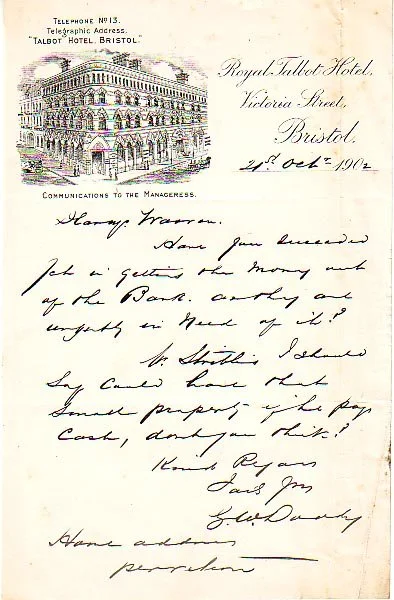 TELEPHONE Nº 13.
Telegraphic Address.
"TALBOT" HOTEL, BRISTOL."
COMMUNICATIONS TO THE MANAGERESS.
Royal Talbot Hotel,
Victoria Street,
Bristol.
21st Octr 1902
Have you succeeded
yet in getting the money out
of the Bank. as they are
urgently in need of it?
I should
say could have that
small property if he pays
cash, don't you think?
Kind Regards
Home address